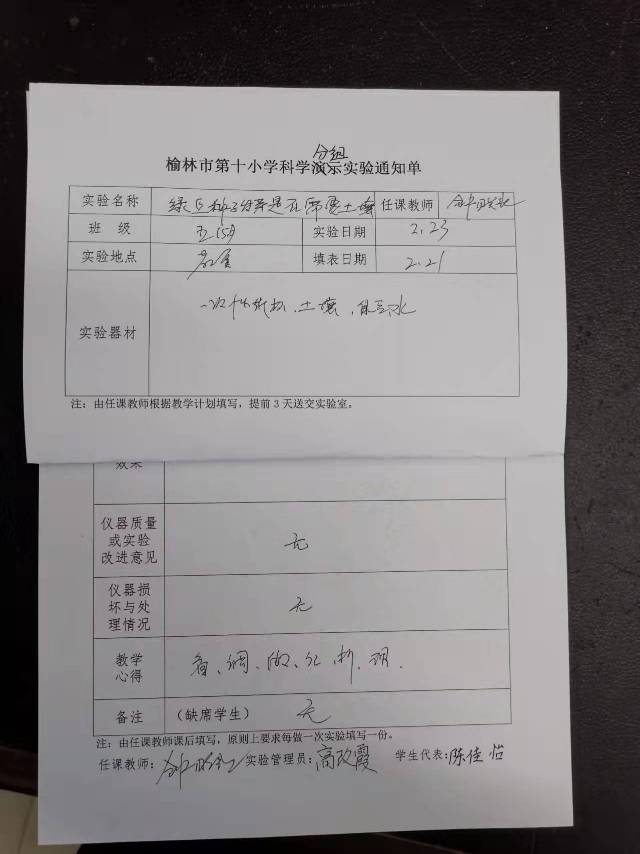 分组
榆林市第十小学科学演示实验通知单
实验名称 绿豆种子发芽是否需要土壤 任课教师
班 级 实验日期 2.23
实验地点 教室 填表日期 2.21
实验器材 一次性纸杯、土壤、绿豆、水
注：由任课教师根据教学计划填写，提前3天送交实验室。
效果
仪器质量
或实验
改进意见 无
仪器损
坏与处
理情况 无
教学
心得
备注 （缺席学生） 无
注：由任课教师课后填写，原则上要求每做一次实验填写一份。
任课教师： 实验管理员：高改霞 学生代表：陈佳怡